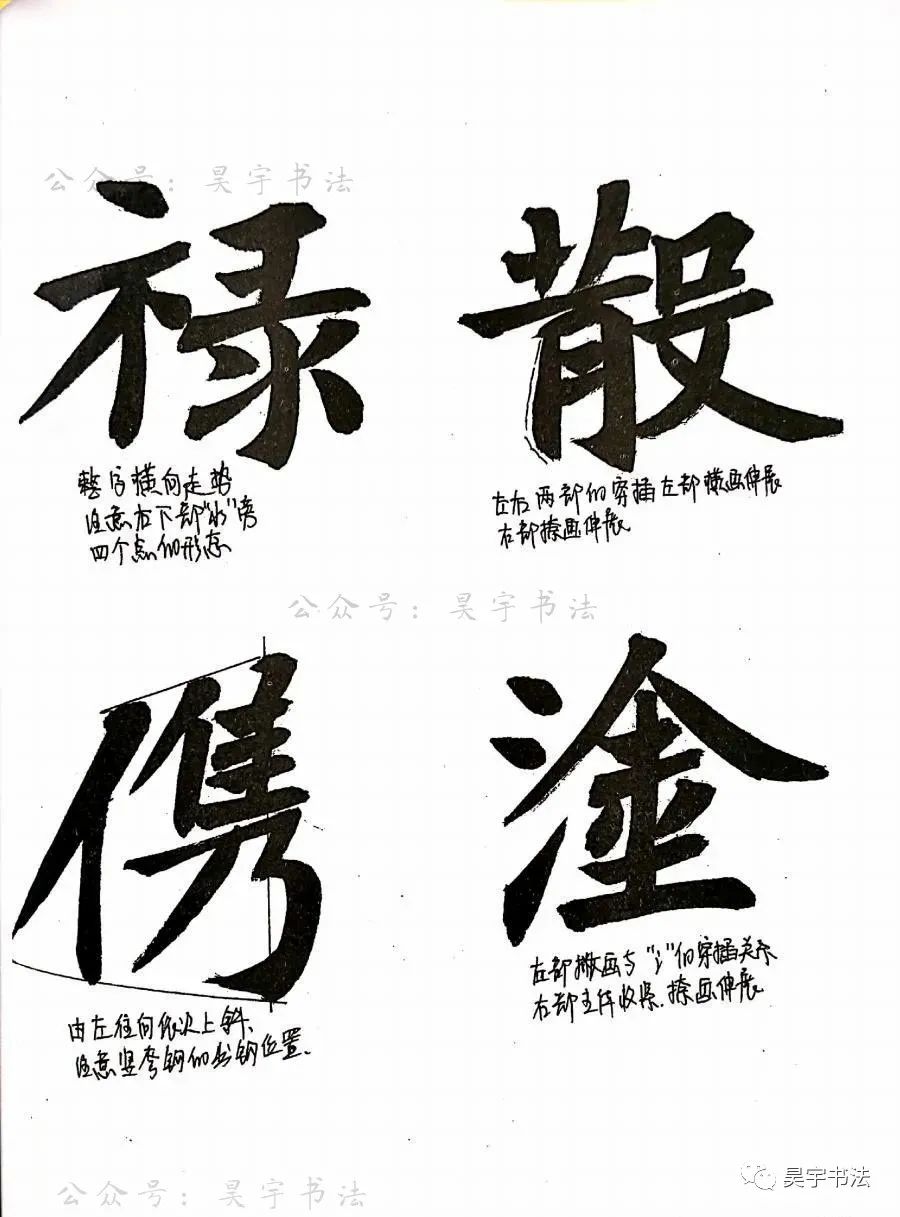 公众号：昊宇书法
禄
散
整字横向走势
注意右下部“水”旁
四个点的形态
左右两部的穿插左部横画伸展
右部捺画伸展
公众号：昊宇书法
儁
塗
由左往向依次上斜、
注意竖弯钩的出钩位置、
左部撇画与“氵”的穿插关系
右部主体收紧、捺画伸展
公众号：昊宇书法
昊宇书法